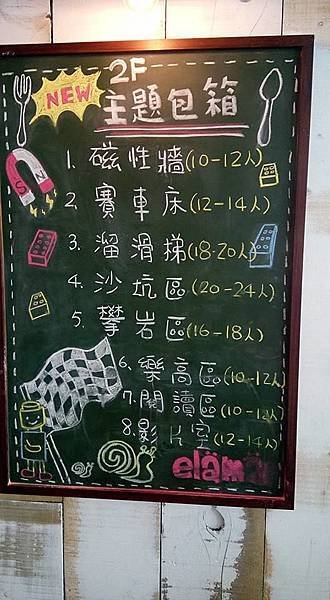 NEW
2F
主題包箱
1. 磁性牆(10-12人)
2. 賽車床(12-14人)
3. 溜滑梯(18-20人)
4. 沙坑區(20-24人)
5. 攀岩區(16-18人)
6. 樂高區(10-12人)
7. 閱讀區(10-12人)
8. 影片字(12-14人)
S N